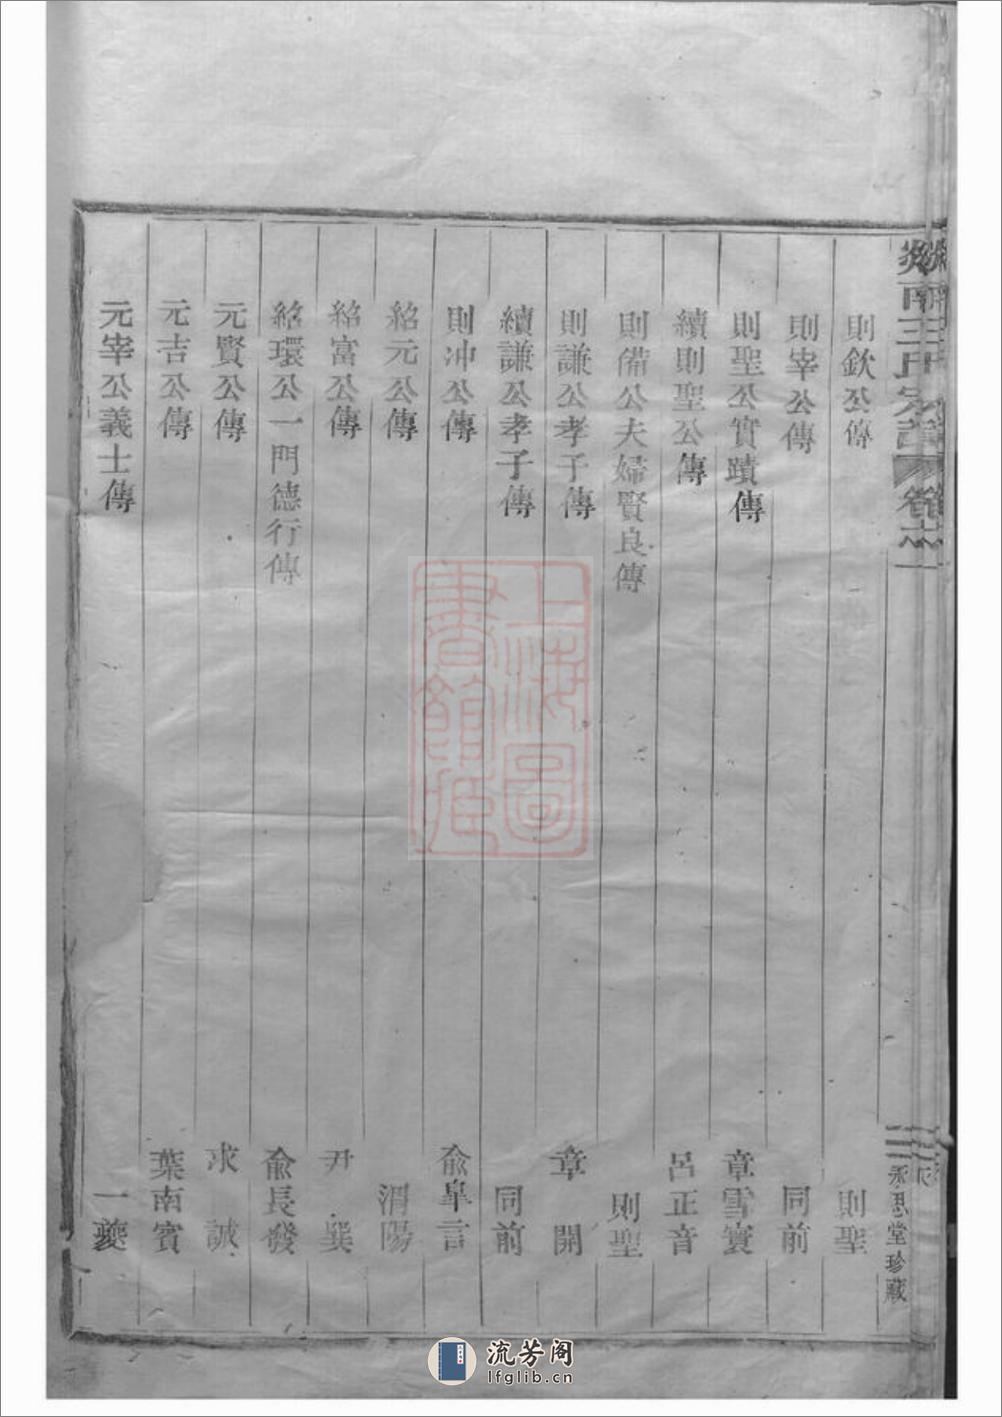 剡南王氏宗譜 卷之
則欽公傳 則聖
則宰公傳 同前
則聖公實蹟傳 章雪寰
續則聖公傳 呂正音
則備公夫婦賢良傳 則聖
則謙公孝子傳 章開
續謙公孝子傳 同前
則冲公傳 俞臯言
紹元公傳 渭陽
紹富公傳 尹巽
紹環公一門德行傳 俞長發
元賢公傳 求誠
元吉公傳 葉南賓
元宰公義士傳 一夔
永思堂珍藏
上海圖書館藏
流芳阁
lfglib.cn